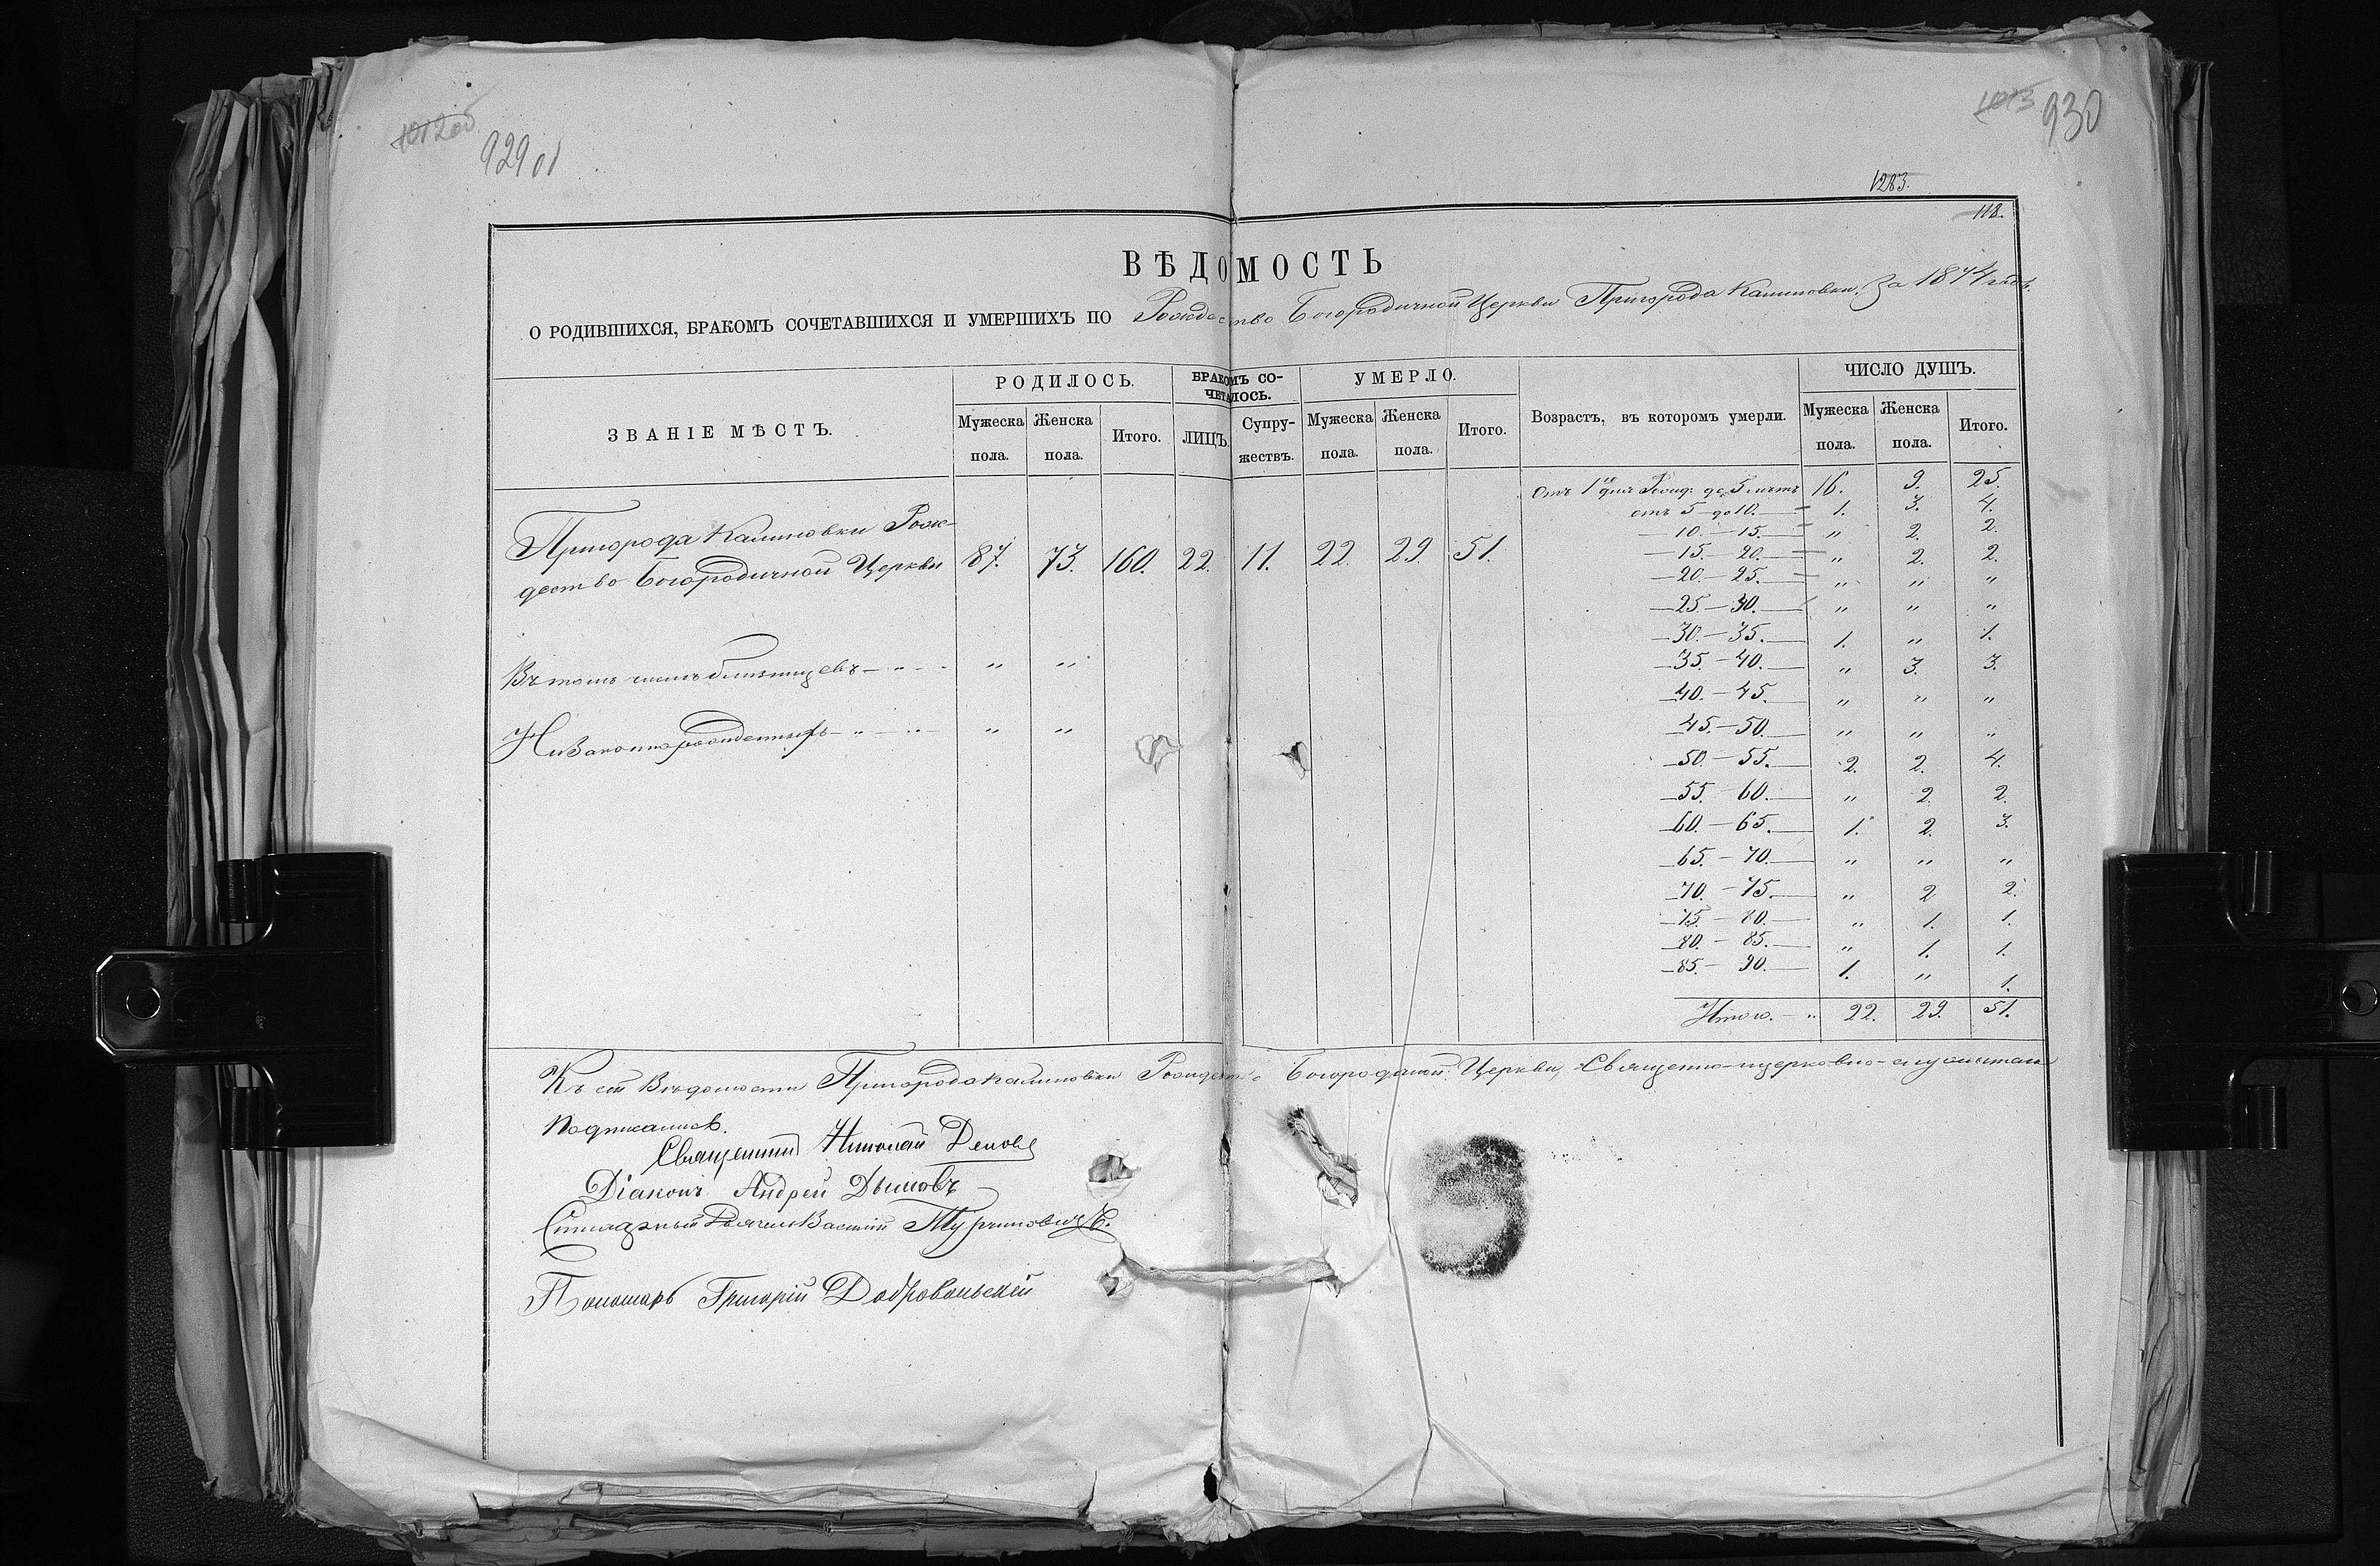 929 об
930
1283.
118.
ВѢДОМОСТЬ
О РОДИВШИХСЯ, БРАКОМЪ СОЧЕТАВШИХСЯ И УМЕРШИХЪ ПО Рождество Богородичной Церкви Пригорода Калиновки. За 1874 годъ.
ЗВАНІЕ МѢСТЪ. РОДИЛОСЬ. БРАКОМЪ СО-ЧЕТАЛОСЬ. УМЕРЛО. Возрастъ, въ которомъ умерли. ЧИСЛО ДУШЪ.
Мужеска пола. Женска пола. Итого. ЛИЦЪ. Супру-жествъ. Мужеска пола. Женска пола. Итого. Мужеска пола. Женска пола. Итого.
Пригорода Калиновки Рож-
дество Богородичной Церкви 87. 73. 160. 22. 11. 22. 29. 51.
Въ томъ числѣ близнецевъ — „ — „ „
Незаконнорожденныхъ — „ — „ — „ „
Отъ 1го дня Рожд. до 5 лѣтъ 16. 9. 25.
отъ 5 до 10. — 1. 3. 4.
— 10. — 15. — „ 2. 2.
— 15. — 20. — „ 2. 2.
— 20. — 25. — „ „ „
— 25. — 30. — „ „ „
— 30. — 35. — 1. „ 1.
— 35. — 40. — „ 3. 3.
— 40. — 45. — „ „ „
— 45. — 50. — „ „ „
— 50. — 55. — 2. 2. 4.
— 55. — 60. — „ 2. 2.
— 60. — 65. — 1. 2. 3.
— 65. — 70. — „ „ „
— 70. — 75. — „ 2 2.
— 75. — 80. — „ 1. 1.
— 80. — 85. — „ 1. 1.
— 85. — 90. — 1. „ 1.
Итого. — „ 22. 29. 51.
Къ сей Вѣдомости Пригорода Калиновки Рождество Богородичной Церкви, Священно-церковно-служители
подписались.
Священникъ Николай
Діаконъ Андрей Дымовъ
Василій
Пономарь Григорій Добровольскій